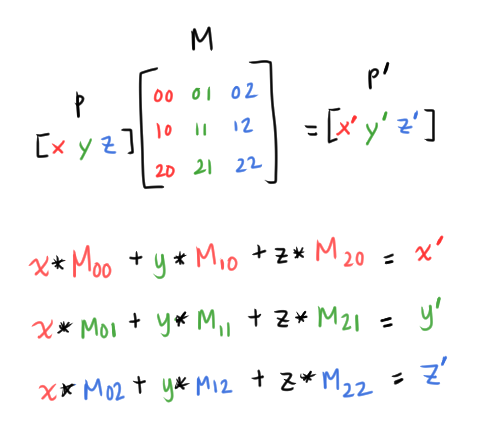 M
P
P'
00 01 02
[x y z] 10 11 12 = [x' y' z']
20 21 22
x*M00 + y*M10 + z*M20 = x'
x*M01 + y*M11 + z*M21 = y'
x*M02 + y*M12 + z*M22 = z'